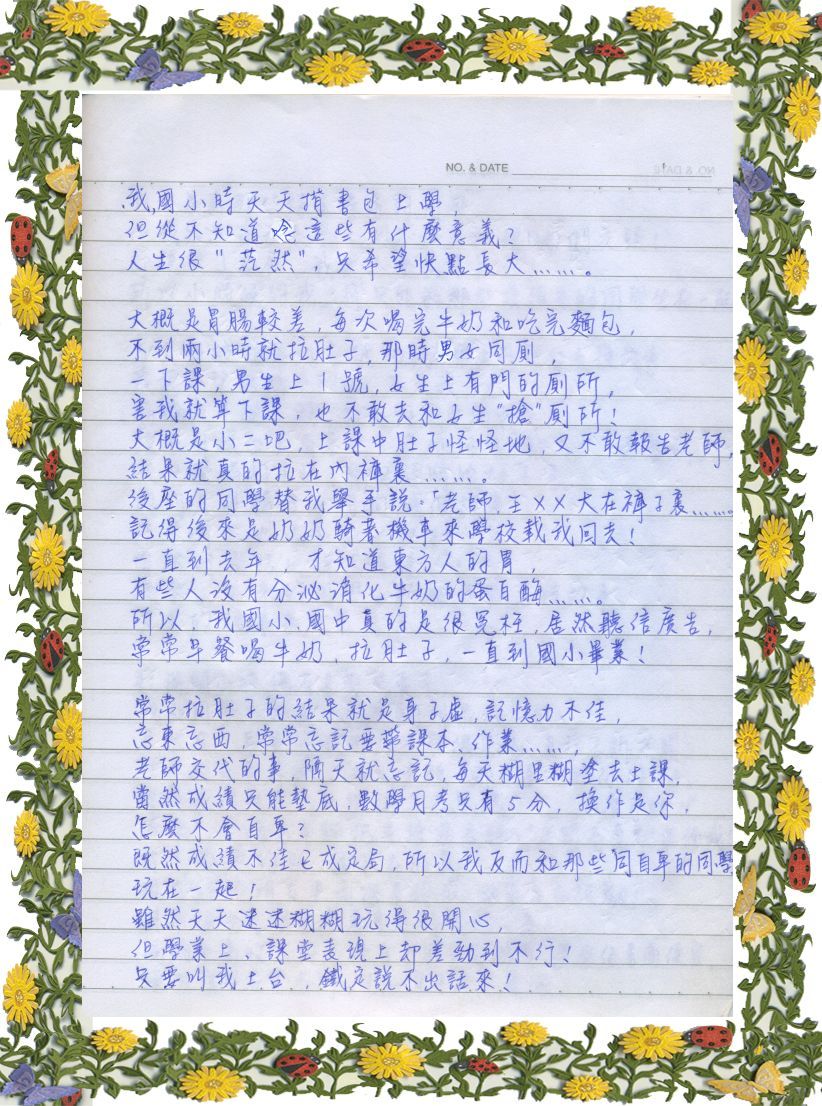 NO. & DATE
我國小時天天揹書包上學,
但從不知道唸這些有什麼意義?
人生很"茫然",只希望快點長大……。
大概是胃腸較差,每次喝完牛奶和吃完麵包,
不到兩小時就拉肚子,那時男女同廁,
一下課,男生上1號,女生上有門的廁所,
害我就算下課,也不敢去和女生"搶"廁所!
大概是小二吧,上課中肚子怪怪地,又不敢報告老師,
結果就真的拉在內褲裏……。
後座的同學替我舉手說:「老師,王××大在褲子裏……。
記得後來是奶奶騎著機車來學校載我回去!
一直到去年,才知道東方人的胃,
有些人沒有分泌消化牛奶的蛋白酶……。
所以,我國小、國中真的是很冤枉,居然聽信廣告,
常常早餐喝牛奶,拉肚子,一直到國小畢業!
常常拉肚子的結果就是身子虛,記憶力不佳,
忘東忘西,常常忘記要帶課本、作業……,
老師交代的事,隔天就忘記,每天糊里糊塗去上課,
當然成績只能墊底,數學月考只有5分,換作是你,
怎麼不會自卑?
既然成績不佳已成定局,所以我反而和那些同自卑的同學
玩在一起!
雖然天天迷迷糊糊玩得很開心,
但學業上、課堂表現上卻差勁到不行!
只要叫我上台,鐵定說不出話來!